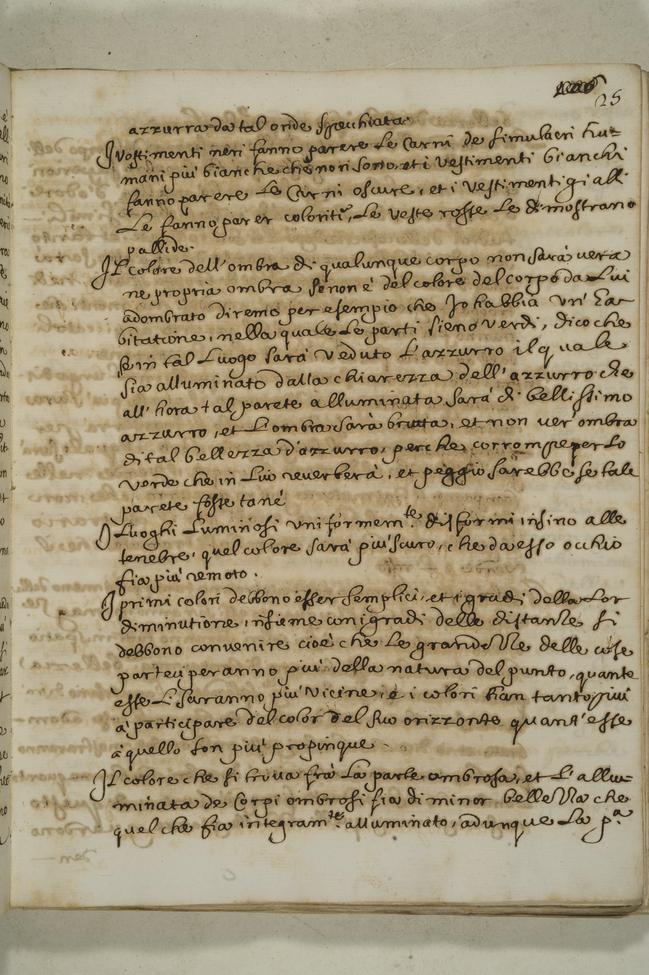 25
azzurra da tal onde specchiata.
I vestimenti neri fanno parere le carni de simulacri hu=
mani più bianche che non sono, et i vestimenti bianchi
fanno parere le carni oscure, et i vestimenti gialli
le fanno parer colorite, le veste rosse le dimostrano
pallide.
Il colore dell'ombra di qualunque corpo non sarà vera
ne propria ombra se non è del colore del corpo da lui
adombrato diremo per esempio che Io habbia un'ha=
bitatione, nella quale le parti sieno verdi, dico che
se in tal luogo sarà veduto l'azzurro il quale
sia alluminato dalla chiarezza dell'azzurro che
all'hora tal parete alluminata sarà di bellissimo
azzurro, et l'ombra sarà brutta, et non ver'ombra
di tal bellezza d'azzurro, perche corrompe per lo
verde che in lui reverberà, et peggio sarebbe se tale
parete fosse tanè
I Luoghi luminosi uniformem.te disformi insino alle
tenebre, quel colore sarà più scuro, che da esso occhio
fia più remoto.
I primi colori debbono esser semplici, et i gradi della lor
diminutione, insieme con i gradi delle distanze si
debbono convenire cioè che le grandezze delle cose
parteciperanno più della natura del punto, quante
esse li saranno più vicine, e i colori han tanto più
à participare del color del suo orizzonte quant'esse
à quello son più propinque.
Il colore che si trova frà la parte ombrosa, et l'allu=
minata de Corpi ombrosi fia di minor bellezza che
quel che fia integram.te alluminato, adunque la p.a